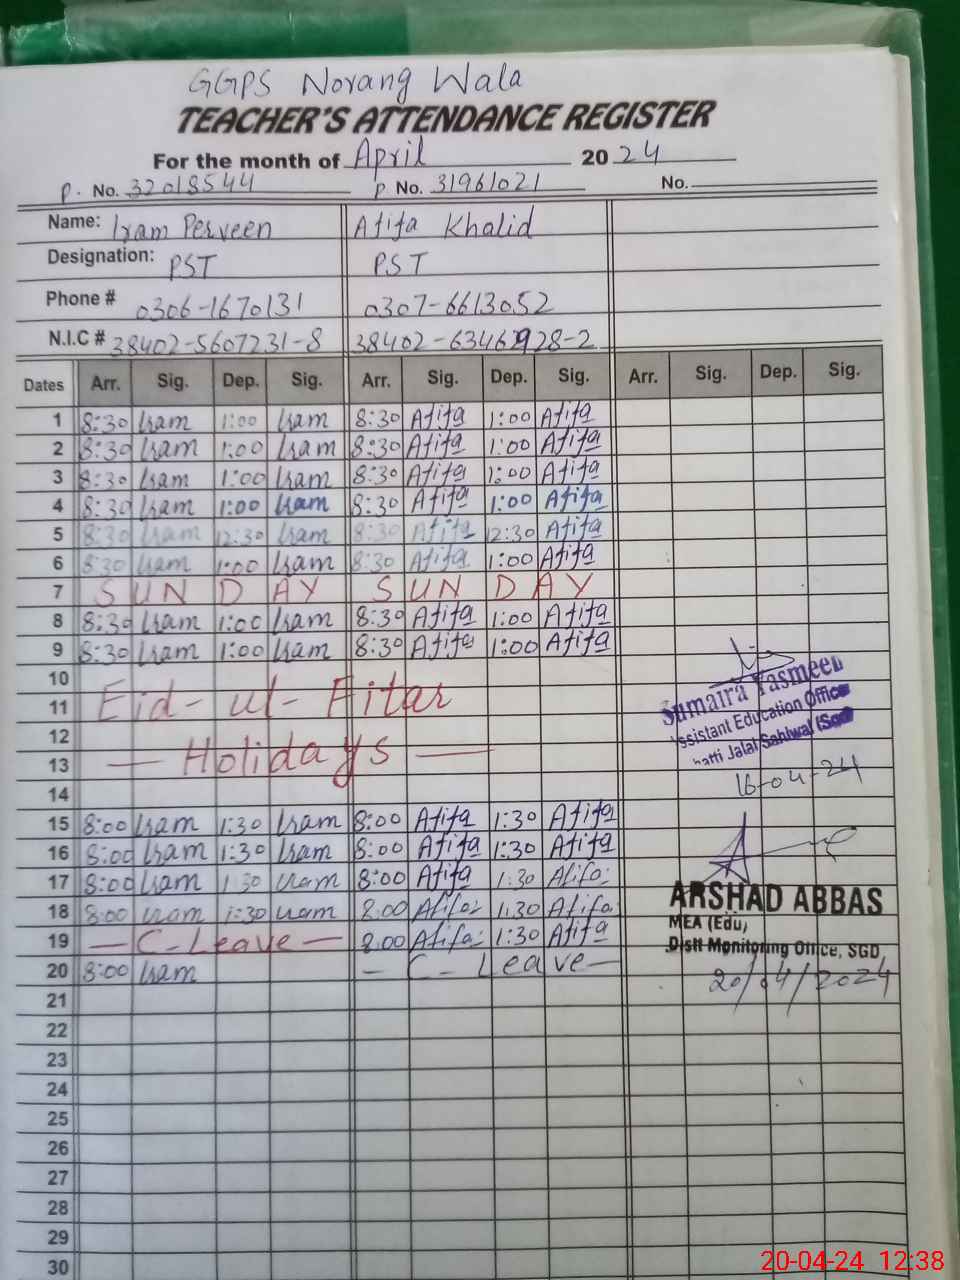 GGPS Norang Wala
TEACHER'S ATTENDANCE REGISTER
For the month of April 2024
P. No. 32018544 P No. 31961021 No.
Name: Iram Perveen Afifa Khalid
Designation: PST PST
Phone # 0306-1670131 0307-6613052
N.I.C # 38402-5607231-8 38402-6346928-2
Dates Arr. Sig. Dep. Sig. Arr. Sig. Dep. Sig. Arr. Sig. Dep. Sig.
1 8:30 Iram 1:00 Iram 8:30 Afifa 1:00 Afifa
2 8:30 Iram 1:00 Iram 8:30 Afifa 1:00 Afifa
3 8:30 Iram 1:00 Iram 8:30 Afifa 1:00 Afifa
4 8:30 Iram 1:00 Iram 8:30 Afifa 1:00 Afifa
5 8:30 Iram 12:30 Iram 8:30 Afifa 12:30 Afifa
6 8:30 Iram 1:00 Iram 8:30 Afifa 1:00 Afifa
7 SUNDAY SUNDAY
8 8:30 Iram 1:00 Iram 8:30 Afifa 1:00 Afifa
9 8:30 Iram 1:00 Iram 8:30 Afifa 1:00 Afifa
10
11 Eid-ul-Fitar
12
13 — Holidays —
14
Sumaira Yasmeen
Assistant Education Officer
Jalal Sahiwal
16-04-24
15 8:00 Iram 1:30 Iram 8:00 Afifa 1:30 Afifa
16 8:00 Iram 1:30 Iram 8:00 Afifa 1:30 Afifa
17 8:00 Iram 1:30 Iram 8:00 Afifa 1:30 Afifa
18 8:00 Iram 1:30 Iram 8:00 Afifa 1:30 Afifa
19 — C-Leave — 8:00 Afifa 1:30 Afifa
20 8:00 Iram — C- Leave —
ARSHAD ABBAS
MEA (Edu)
Distt Monitoring Office, SGD
20/04/2024
21
22
23
24
25
26
27
28
29
30
20-04-24 12:38